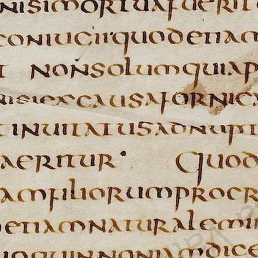 NISIMORTUAFUERIT
CONIUGIIQUODETIAM
T NONSOLUMQUIAP
NISIEXCAUSAFORNICA
TINUITATUSADNUPT
AERITUR· QUOD
AMFILIORUMPROCR
ETIAMNATURALEMIN
IOQUINNONIAMDICE